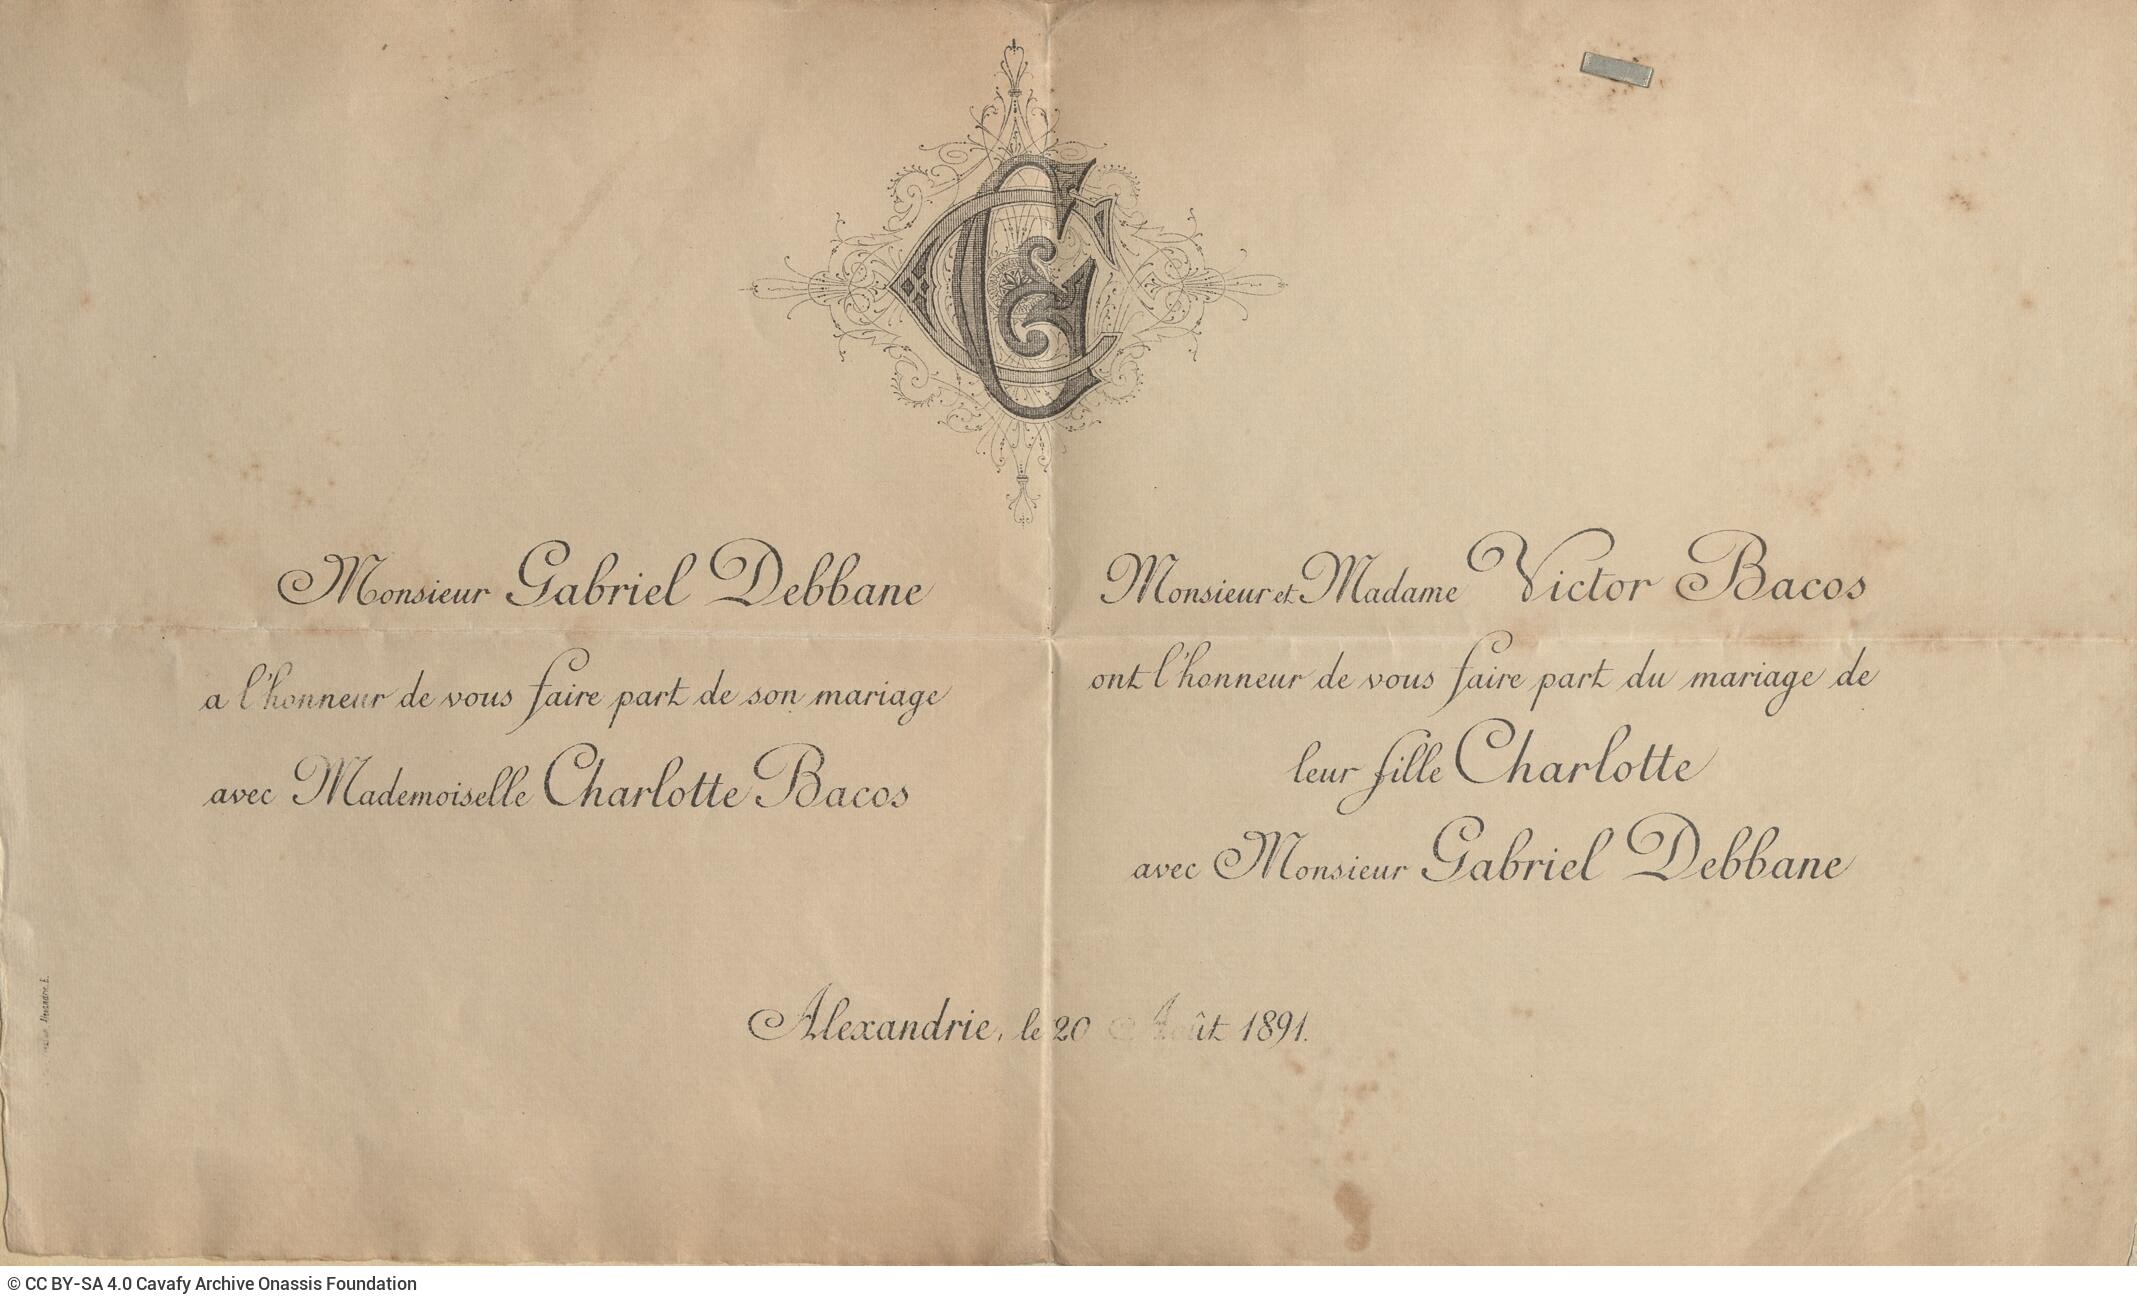 Monsieur Gabriel Debbane
a l'honneur de vous faire part de son mariage
avec Mademoiselle Charlotte Bacos
Monsieur et Madame Victor Bacos
ont l'honneur de vous faire part du mariage de
leur fille Charlotte
avec Monsieur Gabriel Debbane
Alexandrie, le 20 Août 1891.
Alexandrie E.
© CC BY-SA 4.0 Cavafy Archive Onassis Foundation